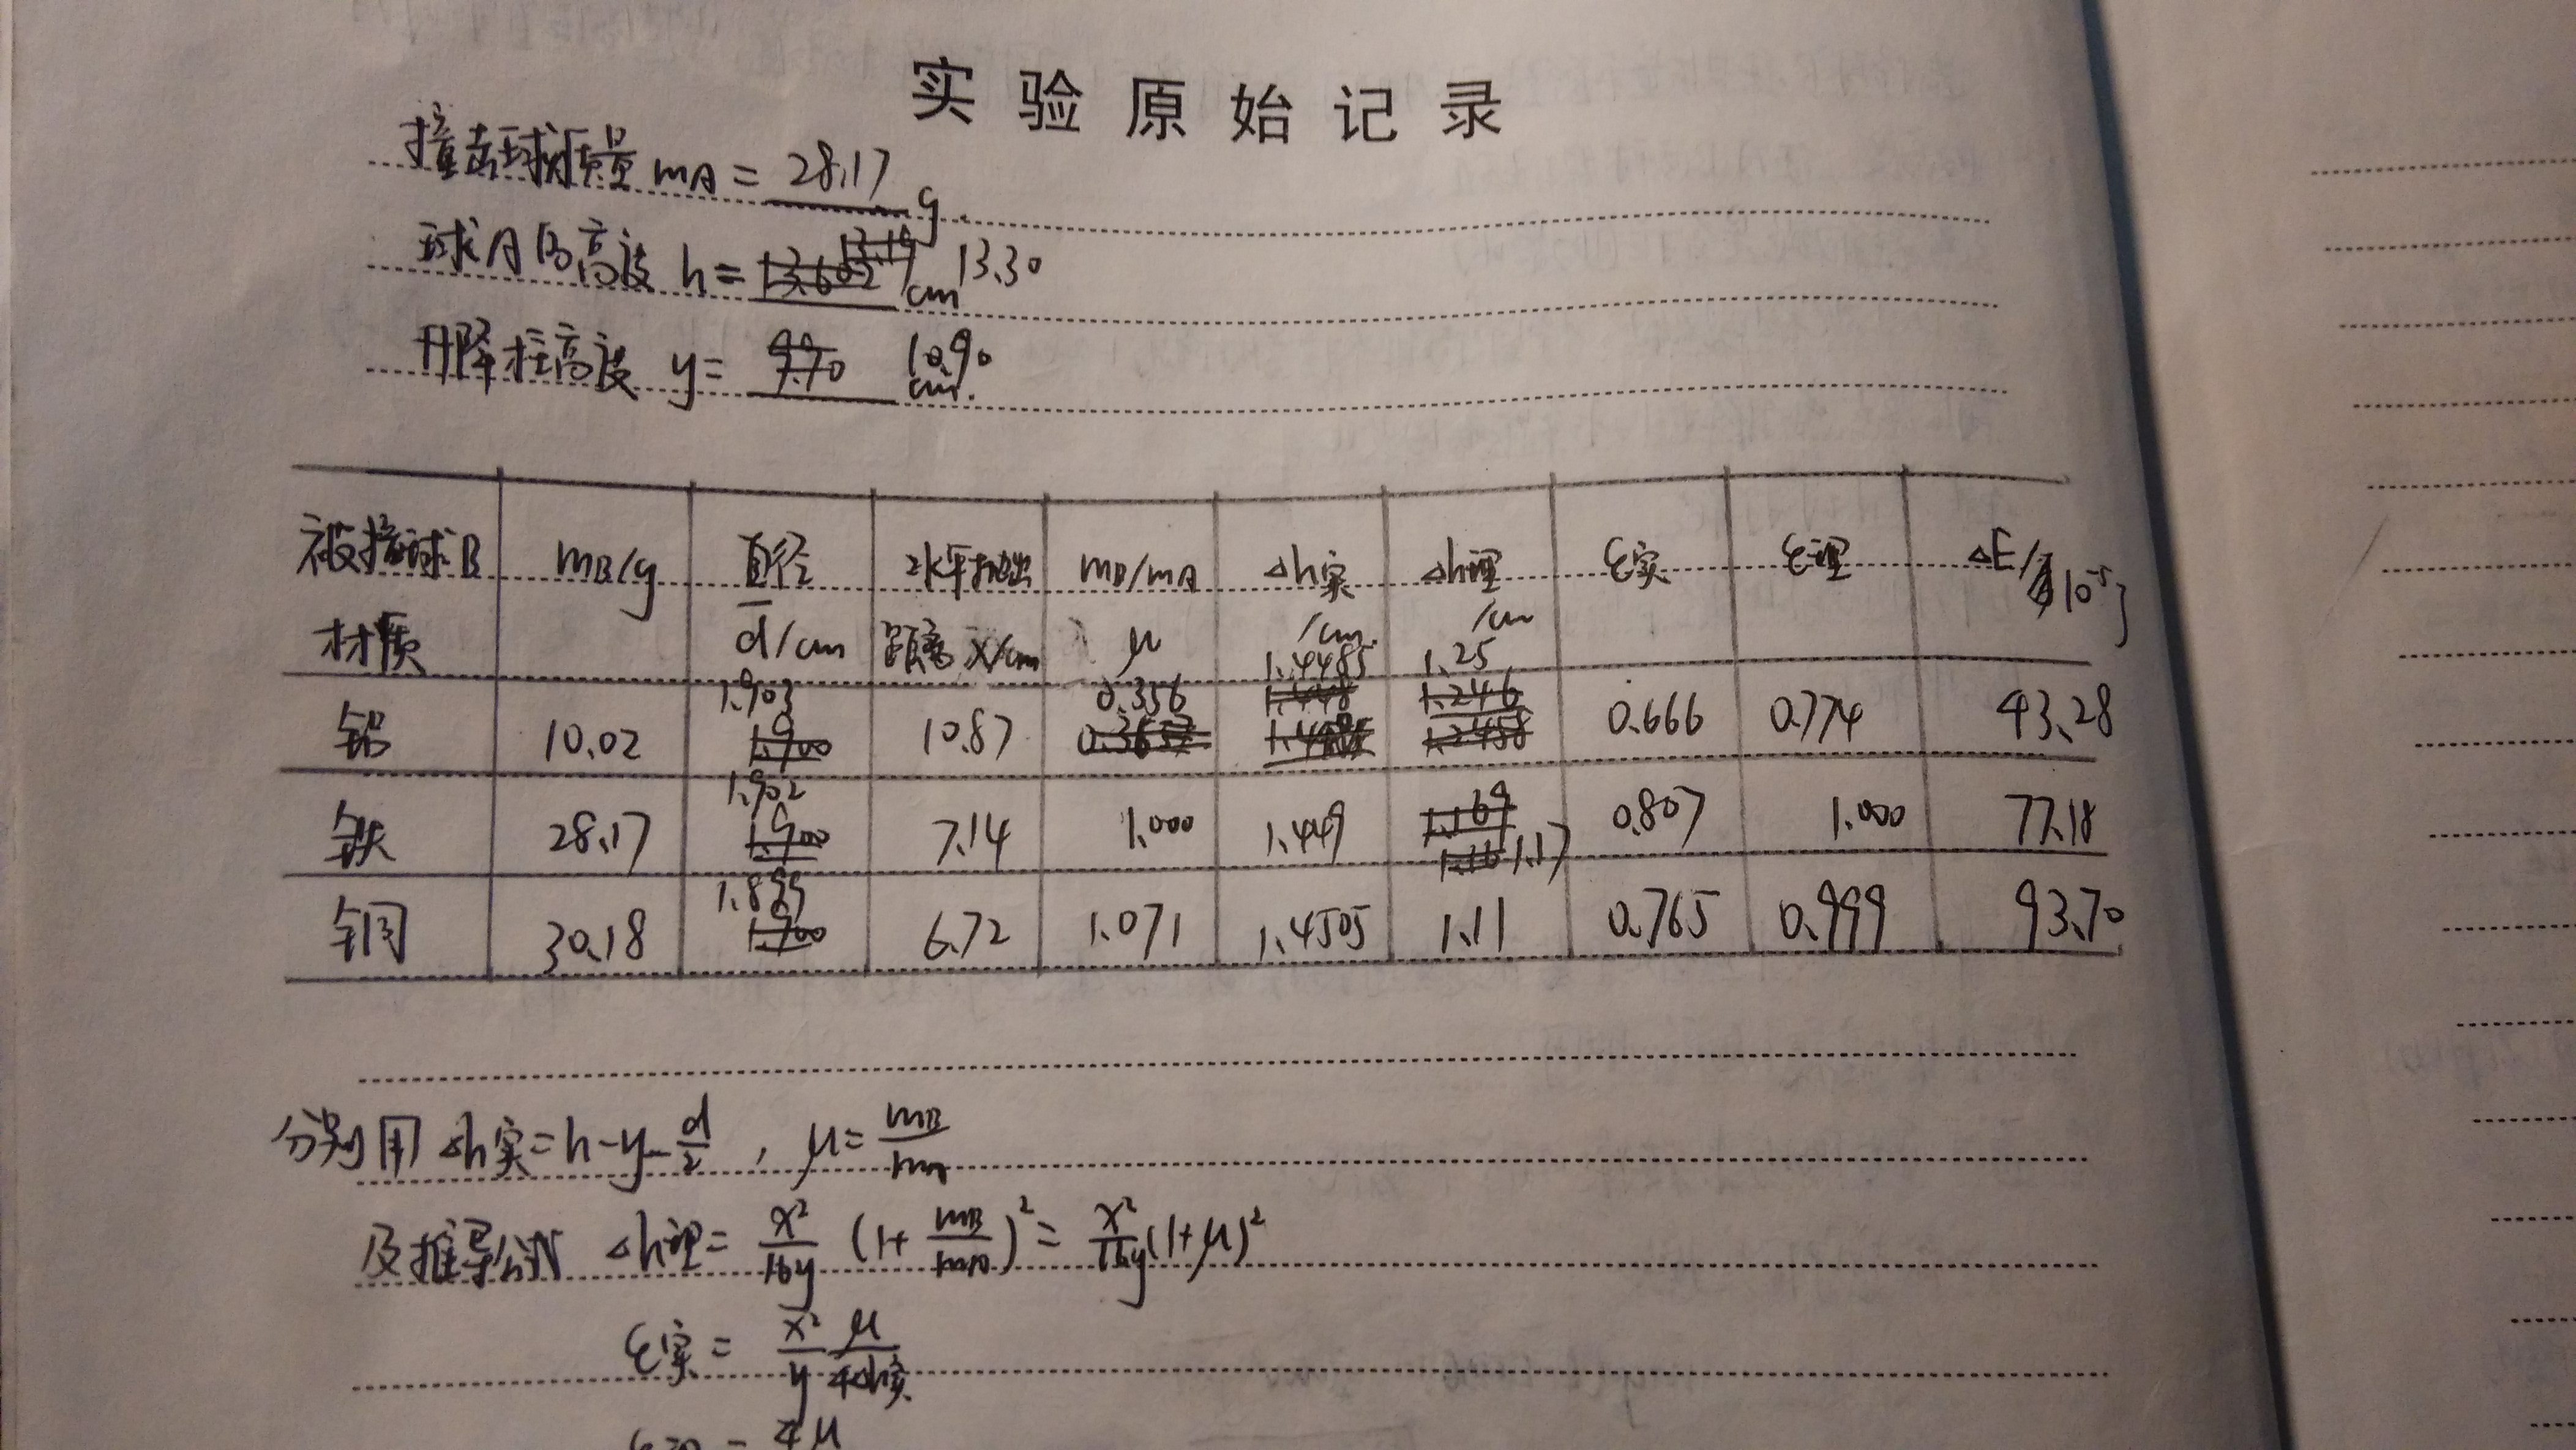 实验原始记录
撞击球质量 mA = 28.17 g.
球A的高度 h = 13.602 13.19 cm 13.30
升降柱高度 y = 9.90 10.90 cm.
被撞球B材质 mB/g 直径 d̄/cm 水平抛出距离 x/cm mB/mA μ Δh实/cm. Δh理/cm ε实 ε理 ΔE/10⁻⁵J
铝 10.02 1.903 1.900 10.87 0.356 1.4485 1.448 1.25 1.246 1.2458 0.666 0.774 43.28
铁 28.17 1.902 1.900 7.14 1.000 1.449 1.169 1.16 1.17 0.807 1.000 77.18
铜 30.18 1.899 1.900 6.72 1.071 1.4505 1.11 0.765 0.999 93.70
分别用 Δh实=h-y-d/2 , μ=mB/mA
及推导公式 Δh理= x²/16y (1+mB/mA)² = x²/16y (1+μ)²
ε实 = x²/y μ/4Δh实
= 4μ